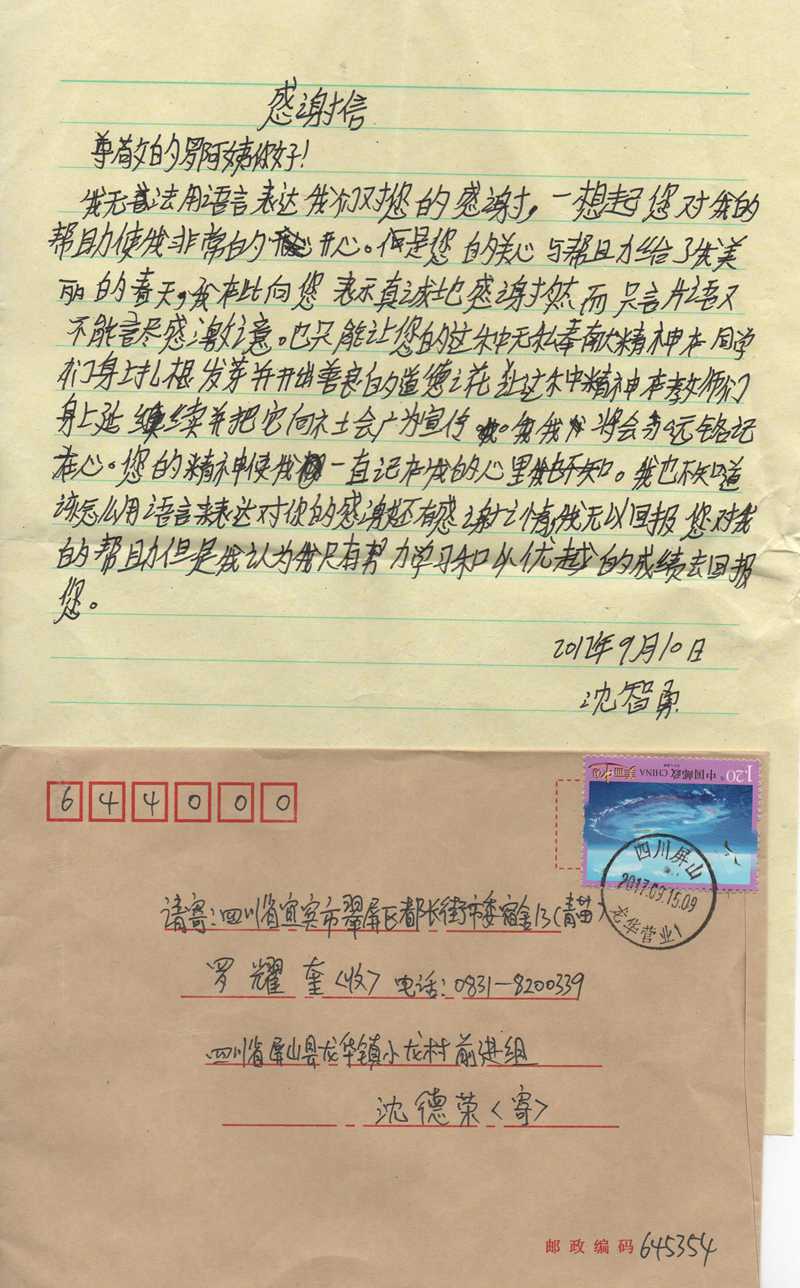 感谢信
尊敬的罗阿姨你好!
我无法用语言表达我们对您的感谢,一想起您对我的
帮助使我非常的开心。但是您的关心与帮助给了我美
丽的春天,我在此向您表示真诚地感谢,然而只言片语又
不能言尽感激之意。也只能让您的这种无私奉献精神在同学
们身上扎根发芽并开出善良的道德之花,让这种精神在教师们
身上延续并把它向社会广为宣传。我将会永远铭记
在心。您的精神使我一直记在我的心里。我也不知道
该怎么用语言来表达对你的感谢还有感谢之情,我无以回报您对我
的帮助但是我认为我只有努力学习和以优越的成绩去回报
您。
2017年9月10日
沈智勇
644000
1.20元 中国邮政 CHINA
美丽中国
四川屏山
2017.09.15.09
龙华营业1
请寄:四川省宜宾市翠屏区都长街市委宿舍13(青苗)
罗耀奎<收> 电话:0831-8200339
四川省屏山县龙华镇小龙村前进组
沈德荣<寄>
邮政编码 645354